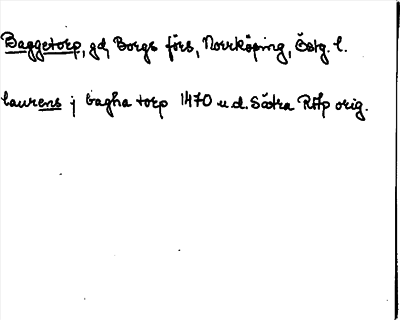 Baggetorp, gd, Borgs förs, Norrköping, Östg. l.
laurens j bagha torp 1470 u.d. Sätra RAp orig.